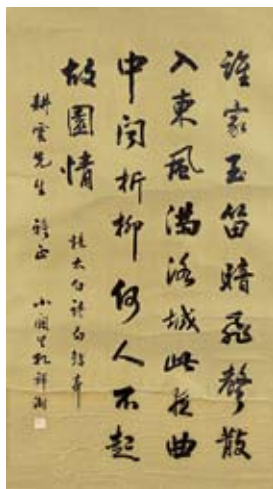 誰家玉笛暗飛聲散
入東風滿洛城此夜曲
中聞折柳何人不起
故園情
太白詩
耕雲先生 正 小園 孔祥